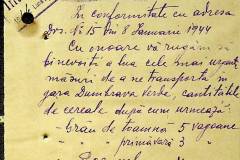 In conformitate cu adresa
Dvs. № 15 din 8 Ianuarie 1944
Cu onoare vă rugăm să
binevoiți a lua cele mai urgente
măsuri de a ne transporta în
gara Dumbrava Verde, cantitățile
de cereale după cum urmează:
Grâu de toamnă 5 vagoane
" primăvară 3 "